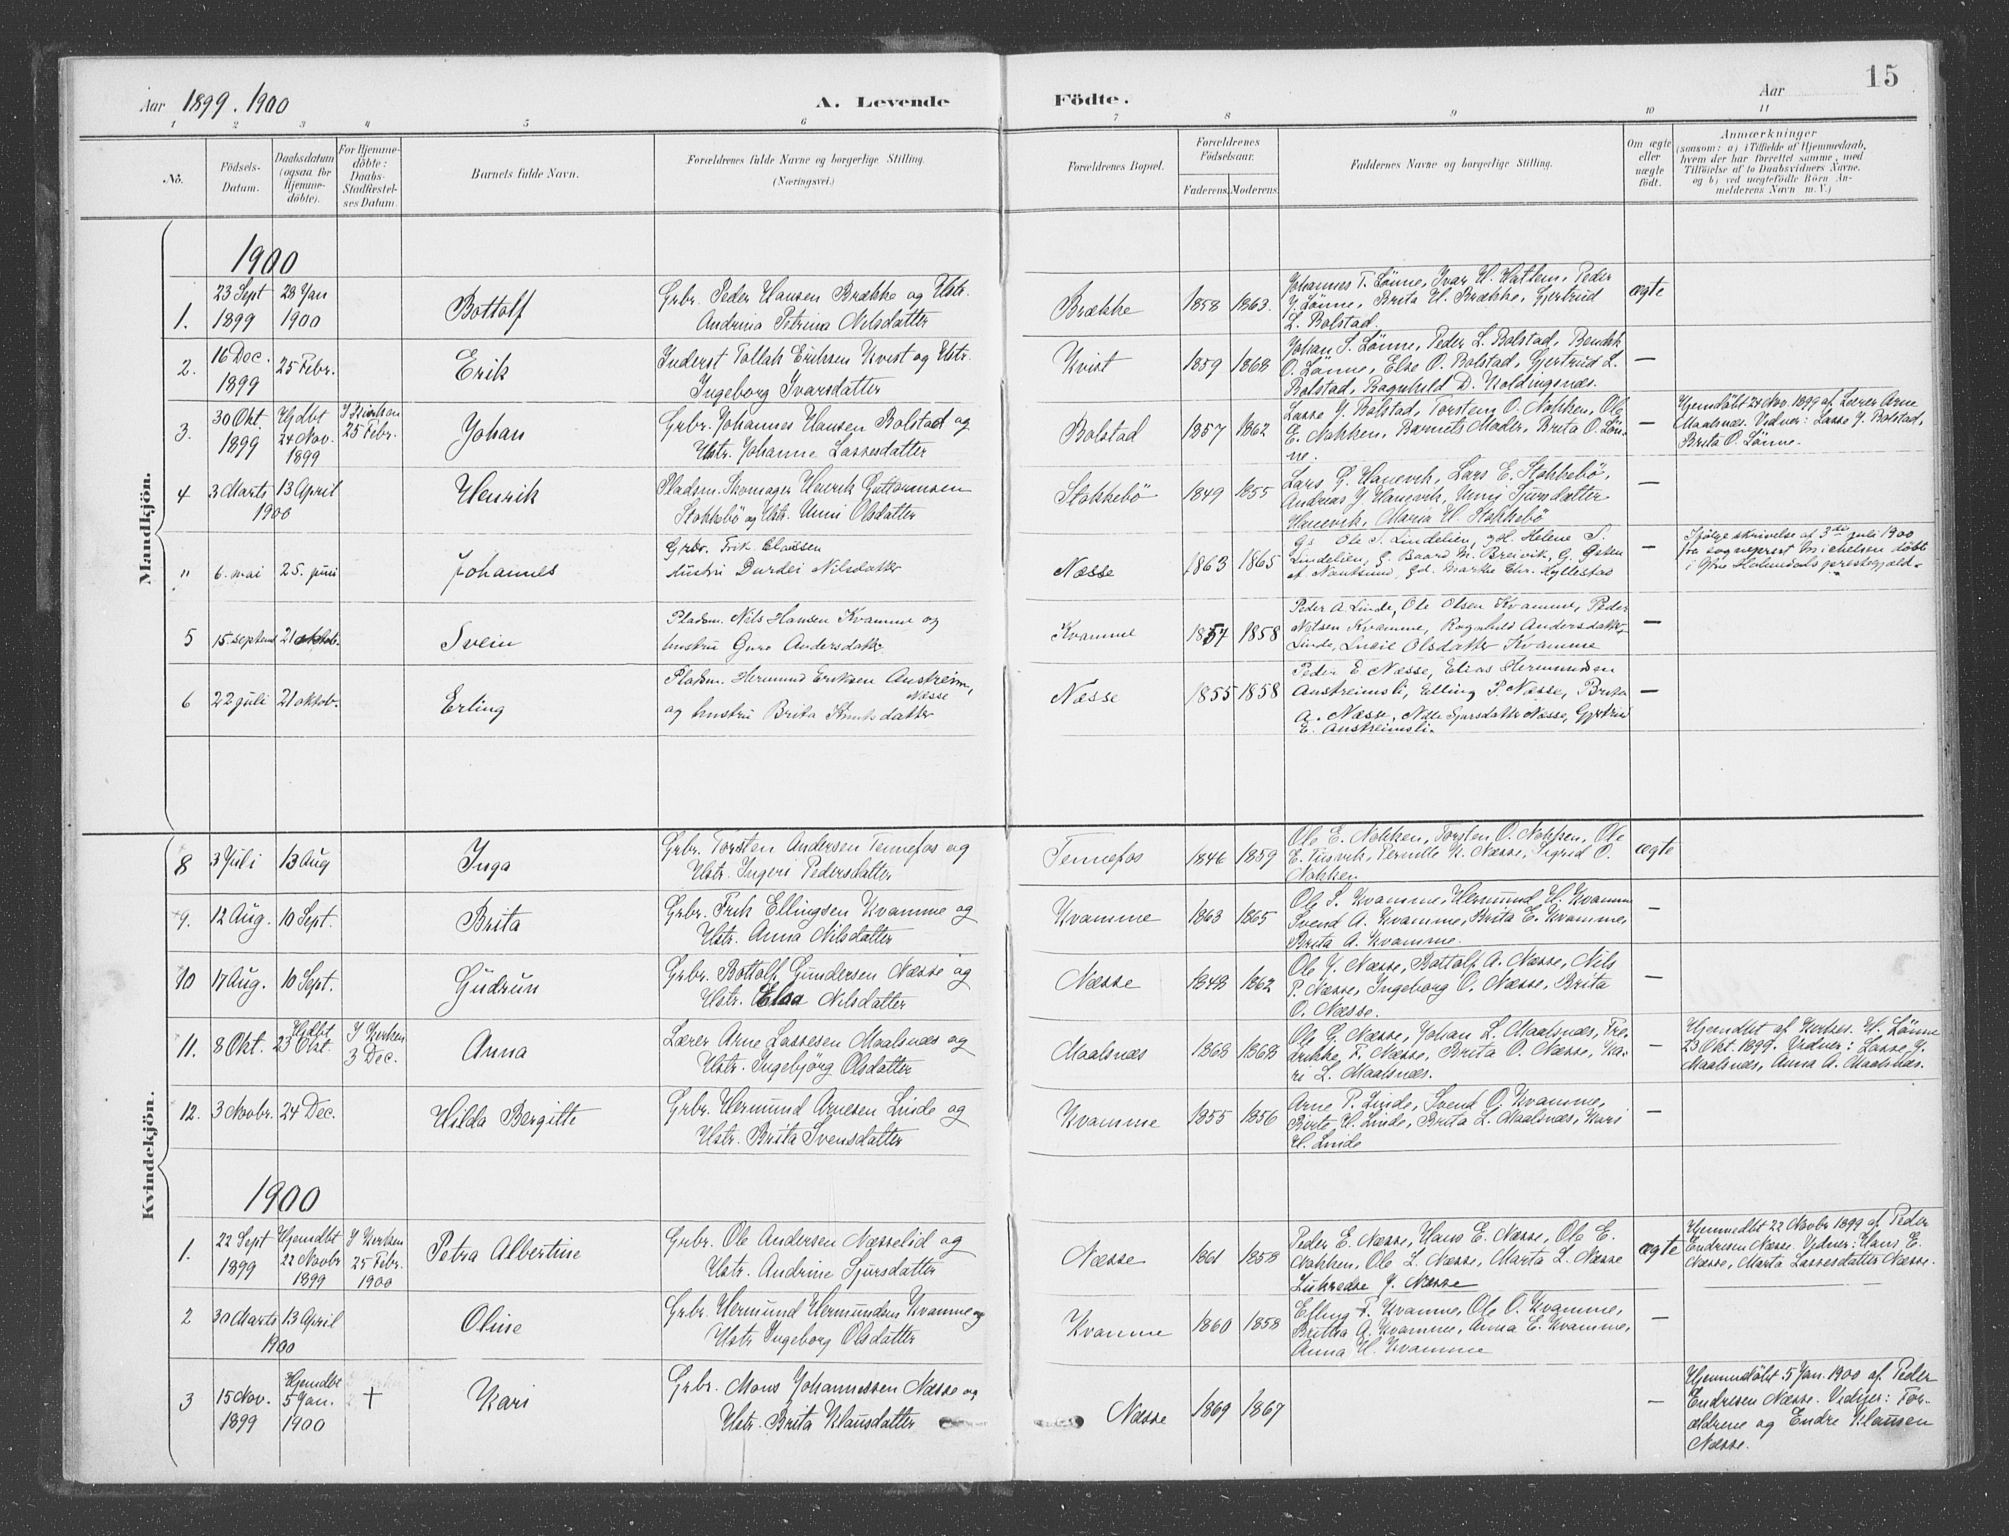 Aar 1899. 1900
A. Levende Födte.
Aar
15
1 2 3 4 5 6 7 8 9 10 11
No.
Födsels-Datum.
Daabsdatum (ogsaa for Hjemmedöbte).
For Hjemmedöbte: Daabs-Stadfestelses Datum.
Barnets fulde Navn.
Forældrenes fulde Navne og borgerlige Stilling. (Næringsvei.)
Forældrenes Bopæl.
Forældrenes Födselsaar.
Faderens. Moderens.
Faddernes Navne og borgerlige Stilling.
Om ægte eller uægte födt.
Anmærkninger
(saasom: a) i Tilfælde af Hjemmedaab,
hvem der har forrettet samme, med
Tilföielse af to Daabsvidners Navne,
og b) ved uægtefödte Börn An-
melderens Navn m. V.)
Mandkjön.
1900
1. 23 Sept 1899
28 Jan 1900
Bottolf
Grbr. Peder Hansen Brække og Hstr.
Andrina Petrina Nilsdatter
Brække
1858 1863.
Johannes T. Lönne, Ivar H. Hatlem, Peder
J. Lönne, Brita H. Brække, Gjertrud
L. Bolstad.
ægte
2. 16 Dec. 1899
25 Febr.
Erik
Inderst Tollak Eriksen Kvist og Hstr.
Ingeborg Ivarsdatter
Kvist
1859 1868
Johan S. Lönne, Peder L. Bolstad, Bendik
O. Lönne, Else O. Bolstad, Gjertrud L.
Bolstad, Ragnhild D. Koldingsnes.
—
3. 30 Okt. 1899
Hjdbt 24 Nov. 1899
I Kirken 25 Febr.
Johan
Grbr. Johannes Hansen Bolstad og
Hstr. Johanne Lassesdatter
Bolstad
1857 1862
Lasse J. Bolstad, Torsten O. Nokken, Ole
E. Nokken, Barnets Moder, Brita O. Lön-
ne.
—
Hjemdöbt 24 Nov. 1899 af Lærer Arne
Maalsnæs. Vidner: Lasse J. Bolstad,
Brita O. Lönne.
4 3 Marts 13 April
1900
Henrik
Pladsm. Skomager Henrik Guttormsen
Stokkebö og Hstr. Unni Olsdatter
Stokkebö
1849 1855
Lars G. Hanevik, Lars E. Stokkebö,
Andreas J Hanevik, Unni Sjursdatter
Hanevik, Maria H. Stokkebö
—
" 6. mai 25. juni
Johannes
Grbr. Erik Claussen
hustru Durdei Nilsdatter
Næsse
1863 1865
Gs Ole S. Lindelien, gH. Helene S.
Lindelien, G. Baard M. Breivik, G. Østen
af Nautsund, gd. Marthe Chr. Hyllestad
—
Ifölge skrivelse af 3die juli 1900
fra sogneprest Michelsen döbt
i Ytre Holmedals prestegjeld.
5 15. septemb 21 oktob.
Svein
Pladsm. Nils Hansen Kvamme og
hustru Guro Andersdatter
Kvamme
1854 1858
Peder A. Linde, Ole Olsen Kvamme, Peder
Nilsen Kvamme, Ragnhild Andersdatter
Linde, Lucie Olsdatter Kvamme
—
6 22 juli 21 oktob.
Erling
Pladsm. Hermund Eriksen Austreim,
Næsse
og hustru Brita Knutsdatter
Næsse
1855 1858
Peder E Næsse, Elias Hermundsen
Austreimsli, Elling P. Næsse, Brita
A. Næsse, Nille Sjursdatter Næsse, Gjertrud
E. Austreimsli.
—
Kvindekjön.
8 3 Juli 13 Aug
Inga
Grbr. Torsten Andersen Tennefos og
Hstr. Ingeri Pedersdatter
Tennefos
1846 1859
Ole E. Nokken, Torsten O. Nokken, Ole
E. Risvik, Pernille K. Næsse, Sigrid O.
Nokken
ægte
9. 12 Aug. 10 Sept.
Brita
Grbr. Erik Ellingsen Kvamme og
Hstr. Anna Nilsdatter
Kvamme
1863 1865
Ole S. Kvamme, Hermund H. Kvamme
Svend A. Kvamme, Brita E. Kvamme,
Brita A. Kvamme.
—
10 17 Aug. 10 Sept.
Gudrun
Grbr. Bottolf Gundersen Næsse og
Hstr. Elsa Nilsdatter
Næsse
1848 1862
Ole J. Næsse, Bottolf A. Næsse, Nils
P. Næsse, Ingeborg O. Næsse, Brita
O. Næsse.
—
11. 8 Okt.
Hjdbt 23 Okt.
I Kirken 3 Dec.
Anna
Lærer Arne Lassesen Maalsnæs og
Hstr. Ingebjörg Olsdatter
Maalsnæs
1868 1868
Ole G. Næsse, Johan L. Maalsnæs, Fre-
drikke F. Næsse, Brita O. Næsse, Ka-
ri L. Maalsnæs.
—
Hjemdbt af Kirkes. H. Lönne
23 Okt. 1899. Vidner: Lasse J.
Maalsnæs, Anna A. Maalsnæs.
12. 3 Novbr. 24 Dec.
Hilda Bergitte
Grbr. Hermund Arnesen Linde og
Hstr. Brita Svensdatter
Kvamme
1855 1856
Arne P. Linde, Svend O. Kvamme,
Birte H. Linde, Brita L. Maalsnæs, Kari
H. Linde
—
1900
1. 22 Sept 1899
Hjemdbt 22 Novbr 1899
I Kirken 25 Febr. 1900
Petra Albertine
Grbr. Ole Andersen Næsselid og
Hstr. Andrine Sjursdatter
Næsse
1861 1858
Peder E. Næsse, Hans E. Næsse, Ole E.
Nokken, Ole L. Næsse, Marta L. Næsse
Lukredse J. Næsse
ægte
Hjemmedbt 22 Novbr 1899 af Peder
Endresen Næsse. Vidner: Hans E.
Næsse, Marta Lassesdatter Næsse.
2 30 Marts 13 April
1900
Oline
Grbr. Hermund Hermundsen Kvamme og
Hstr. Ingeborg Olsdatter
Kvamme
1860 1858
Elling F. Kvamme, Ole O. Kvamme,
Brittha A. Kvamme, Anna E. Kvamme,
Anna H. Kvamme
—
3 15 Nov. 1899
Hjemdbt 5 Jan. 1900
+
Kari
Grbr. Mons Johannessen Næsse og
Hstr. Brita Klausdatter
Næsse
1869 1867
—
Hjemmedöbt 5 Jan. 1900 af Peder
Endresen Næsse. Vidner: For-
ældrene og Endre Klausen
Næsse.